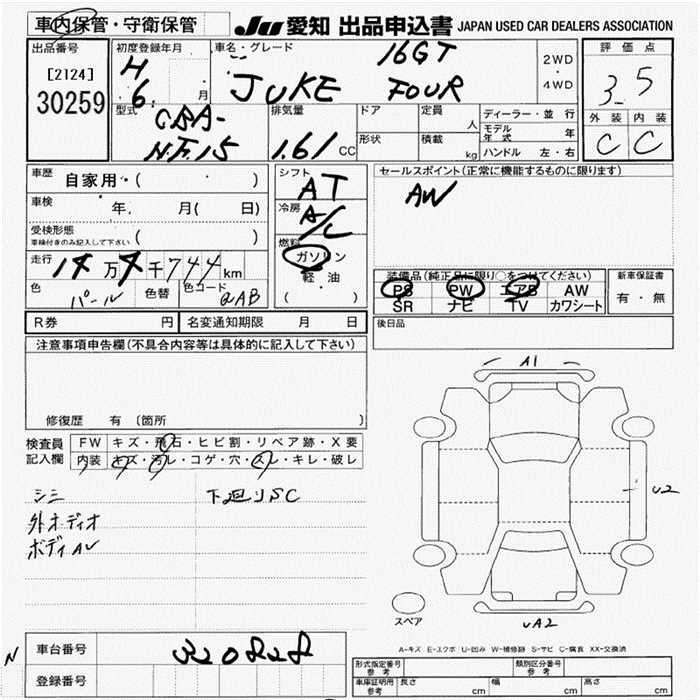 車内保管・守衛保管 JU 愛知 出品申込書 JAPAN USED CAR DEALERS ASSOCIATION
出品番号 初度登録年月 車名・グレード 16GT 2WD・4WD 評価点
[2124] H 6 月 JUKE FOUR 3.5
30259 型式 CBA- 排気量 ドア 定員 人 ディーラー・並行 外装 内装
NF15 1.61 CC 形状 積載 kg モデル年式 年 C C
ハンドル 左・右
車歴 自家用・( ) シフト AT セールスポイント(正常に機能するものに限ります)
車検 年. 月( 日) 冷房 A/C AW
受検形態 車検付きのみ記入して下さい ( ) 燃料 ガソリン
走行 万 千 744 km 軽・油 装備品(純正品に限り○をつけてください) 新車保証書
色 パール 色替 色コード QAB ( ) PS PW エアB AW 有・無
SR ナビ TV カワシート
R券 円 名変通知期限 月 日 後日品
注意事項申告欄(不具合内容等は具体的に記入して下さい)
修復歴 有 (箇所 )
検査員記入欄 FW キズ・飛石・ヒビ割・リペア跡・X要
内装 キズ・汚レ・コゲ・穴・スレ・キレ・破レ
シミ 下廻りSC
外オーディオ
ボディAU
A1
U2
スペア UA2
A-キズ E-エクボ U-凹み W-補修跡 S-サビ C-腐食 XX-交換済
N 車台番号 320828
登録番号
形式指定番号 参考 類別区分番号 参考
車庫証明用 参考 長さ cm 幅 cm 高さ cm